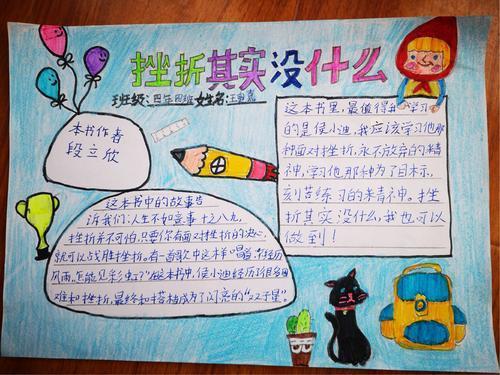 挫折其实没什么
班级:四年四班 姓名:王
本书作者
段立欣
这本书里,最值得我学习
的是侯小迪,我应该学习他那
种面对挫折,永不放弃的精
神,学习他那种为了目标,
刻苦练习的来精神。挫
折其实没什么,我也可以
做到!
这本书中的故事告
诉我们:人生不如意事十之八九,
挫折并不可怕,只要你有面对挫折的决心,
就可以战胜挫折。有一首歌中这样唱:“不经历
风雨,怎能见彩虹?”在这本书中,侯小迪经历了很多困
难和挫折,最终和搭档成为了闪亮的“双子星”。